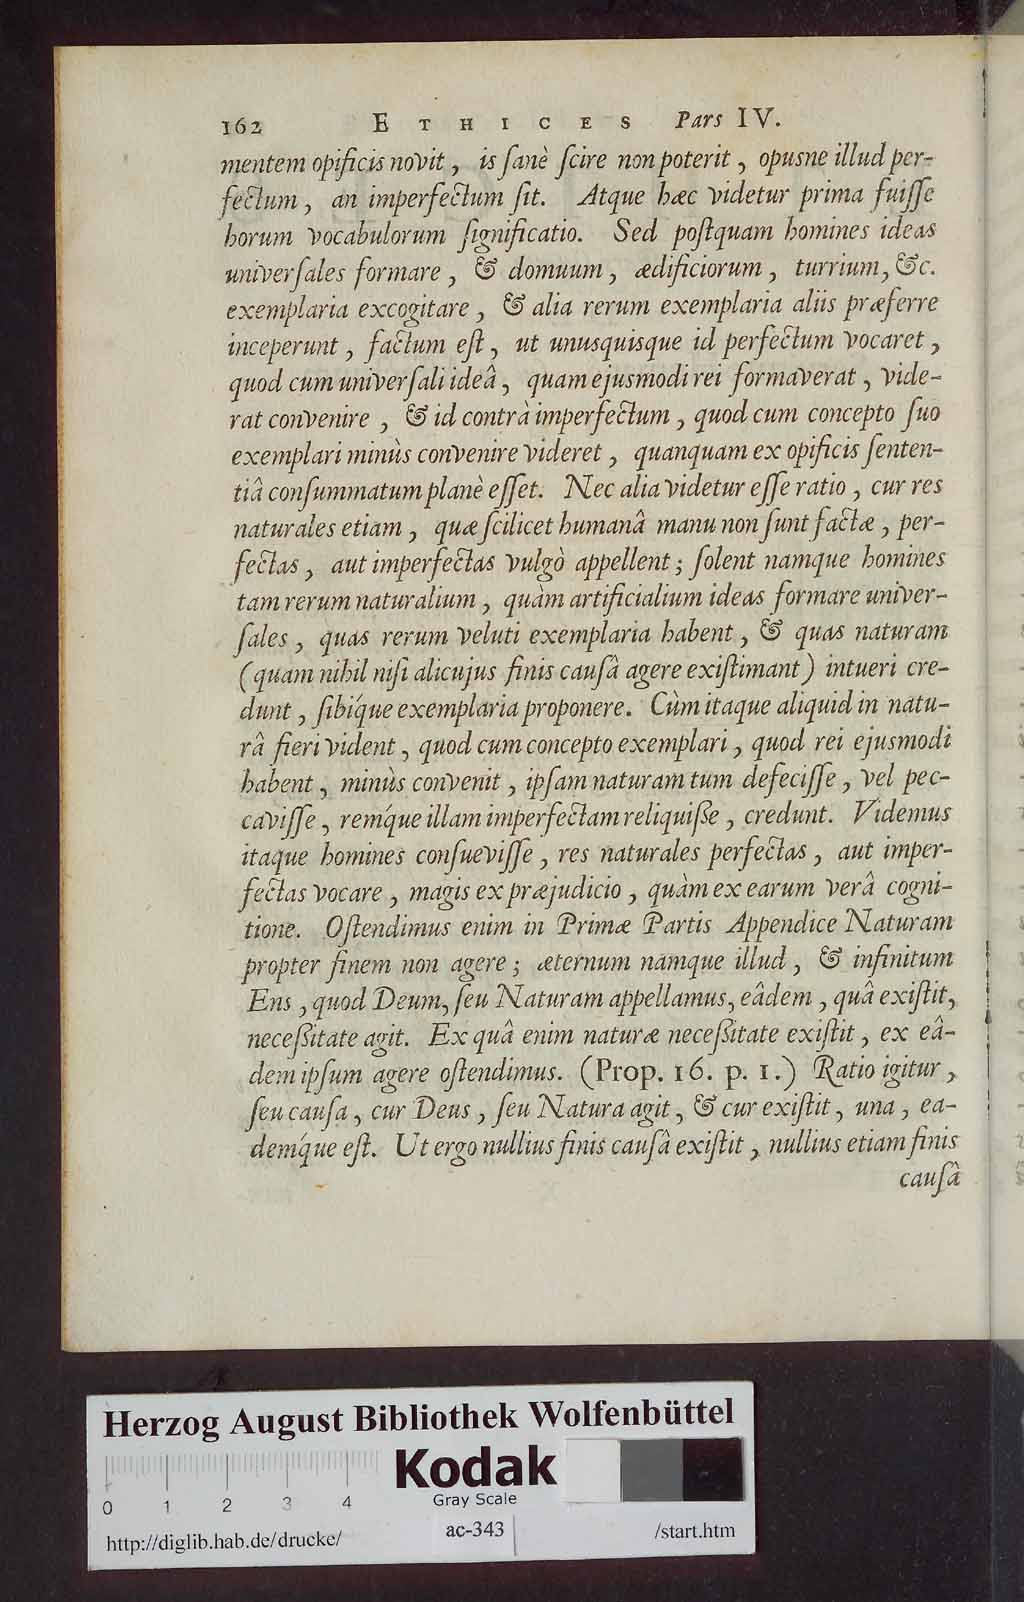 162 ETHICES Pars IV.
mentem opificis novit, is ſanè ſcire non poterit, opusne illud per-
fectum, an imperfectum ſit. Atque hæc videtur prima fuiſſe
horum vocabulorum ſignificatio. Sed poſtquam homines ideas
univerſales formare, & domuum, ædificiorum, turrium, &c.
exemplaria excogitare, & alia rerum exemplaria aliis præferre
inceperunt, factum eſt, ut unusquisque id perfectum vocaret,
quod cum univerſali ideâ, quam ejusmodi rei formaverat, vide-
rat convenire, & id contrà imperfectum, quod cum concepto ſuo
exemplari minùs convenire videret, quanquam ex opificis ſenten-
tiâ conſummatum planè eſſet. Nec alia videtur eſſe ratio, cur res
naturales etiam, quæ ſcilicet humanâ manu non ſunt factæ, per-
fectas, aut imperfectas vulgò appellent; ſolent namque homines
tam rerum naturalium, quàm artificialium ideas formare univer-
ſales, quas rerum veluti exemplaria habent, & quas naturam
(quam nihil niſi alicujus finis cauſâ agere exiſtimant) intueri cre-
dunt, ſibíque exemplaria proponere. Cùm itaque aliquid in natu-
râ fieri vident, quod cum concepto exemplari, quod rei ejusmodi
habent, minùs convenit, ipſam naturam tum defeciſſe, vel pec-
caviſſe, remq́ue illam imperfectam reliquiſſe, credunt. Videmus
itaque homines conſueviſſe, res naturales perfectas, aut imper-
fectas vocare, magis ex præjudicio, quàm ex earum verâ cogni-
tione. Oſtendimus enim in Primæ Partis Appendice Naturam
propter finem non agere; æternum namque illud, & infinitum
Ens, quod Deum, ſeu Naturam appellamus, eâdem, quâ exiſtit,
neceſſitate agit. Ex quâ enim naturæ neceſſitate exiſtit, ex eâ-
dem ipſum agere oſtendimus. (Prop. 16. p. 1.) Ratio igitur,
ſeu cauſa, cur Deus, ſeu Natura agit, & cur exiſtit, una, ea-
demq́ue eſt. Ut ergo nullius finis cauſâ exiſtit, nullius etiam finis
cauſâ
Herzog August Bibliothek Wolfenbüttel
Kodak
Gray Scale
0 1 2 3 4
http://diglib.hab.de/drucke/ ac-343 /start.htm